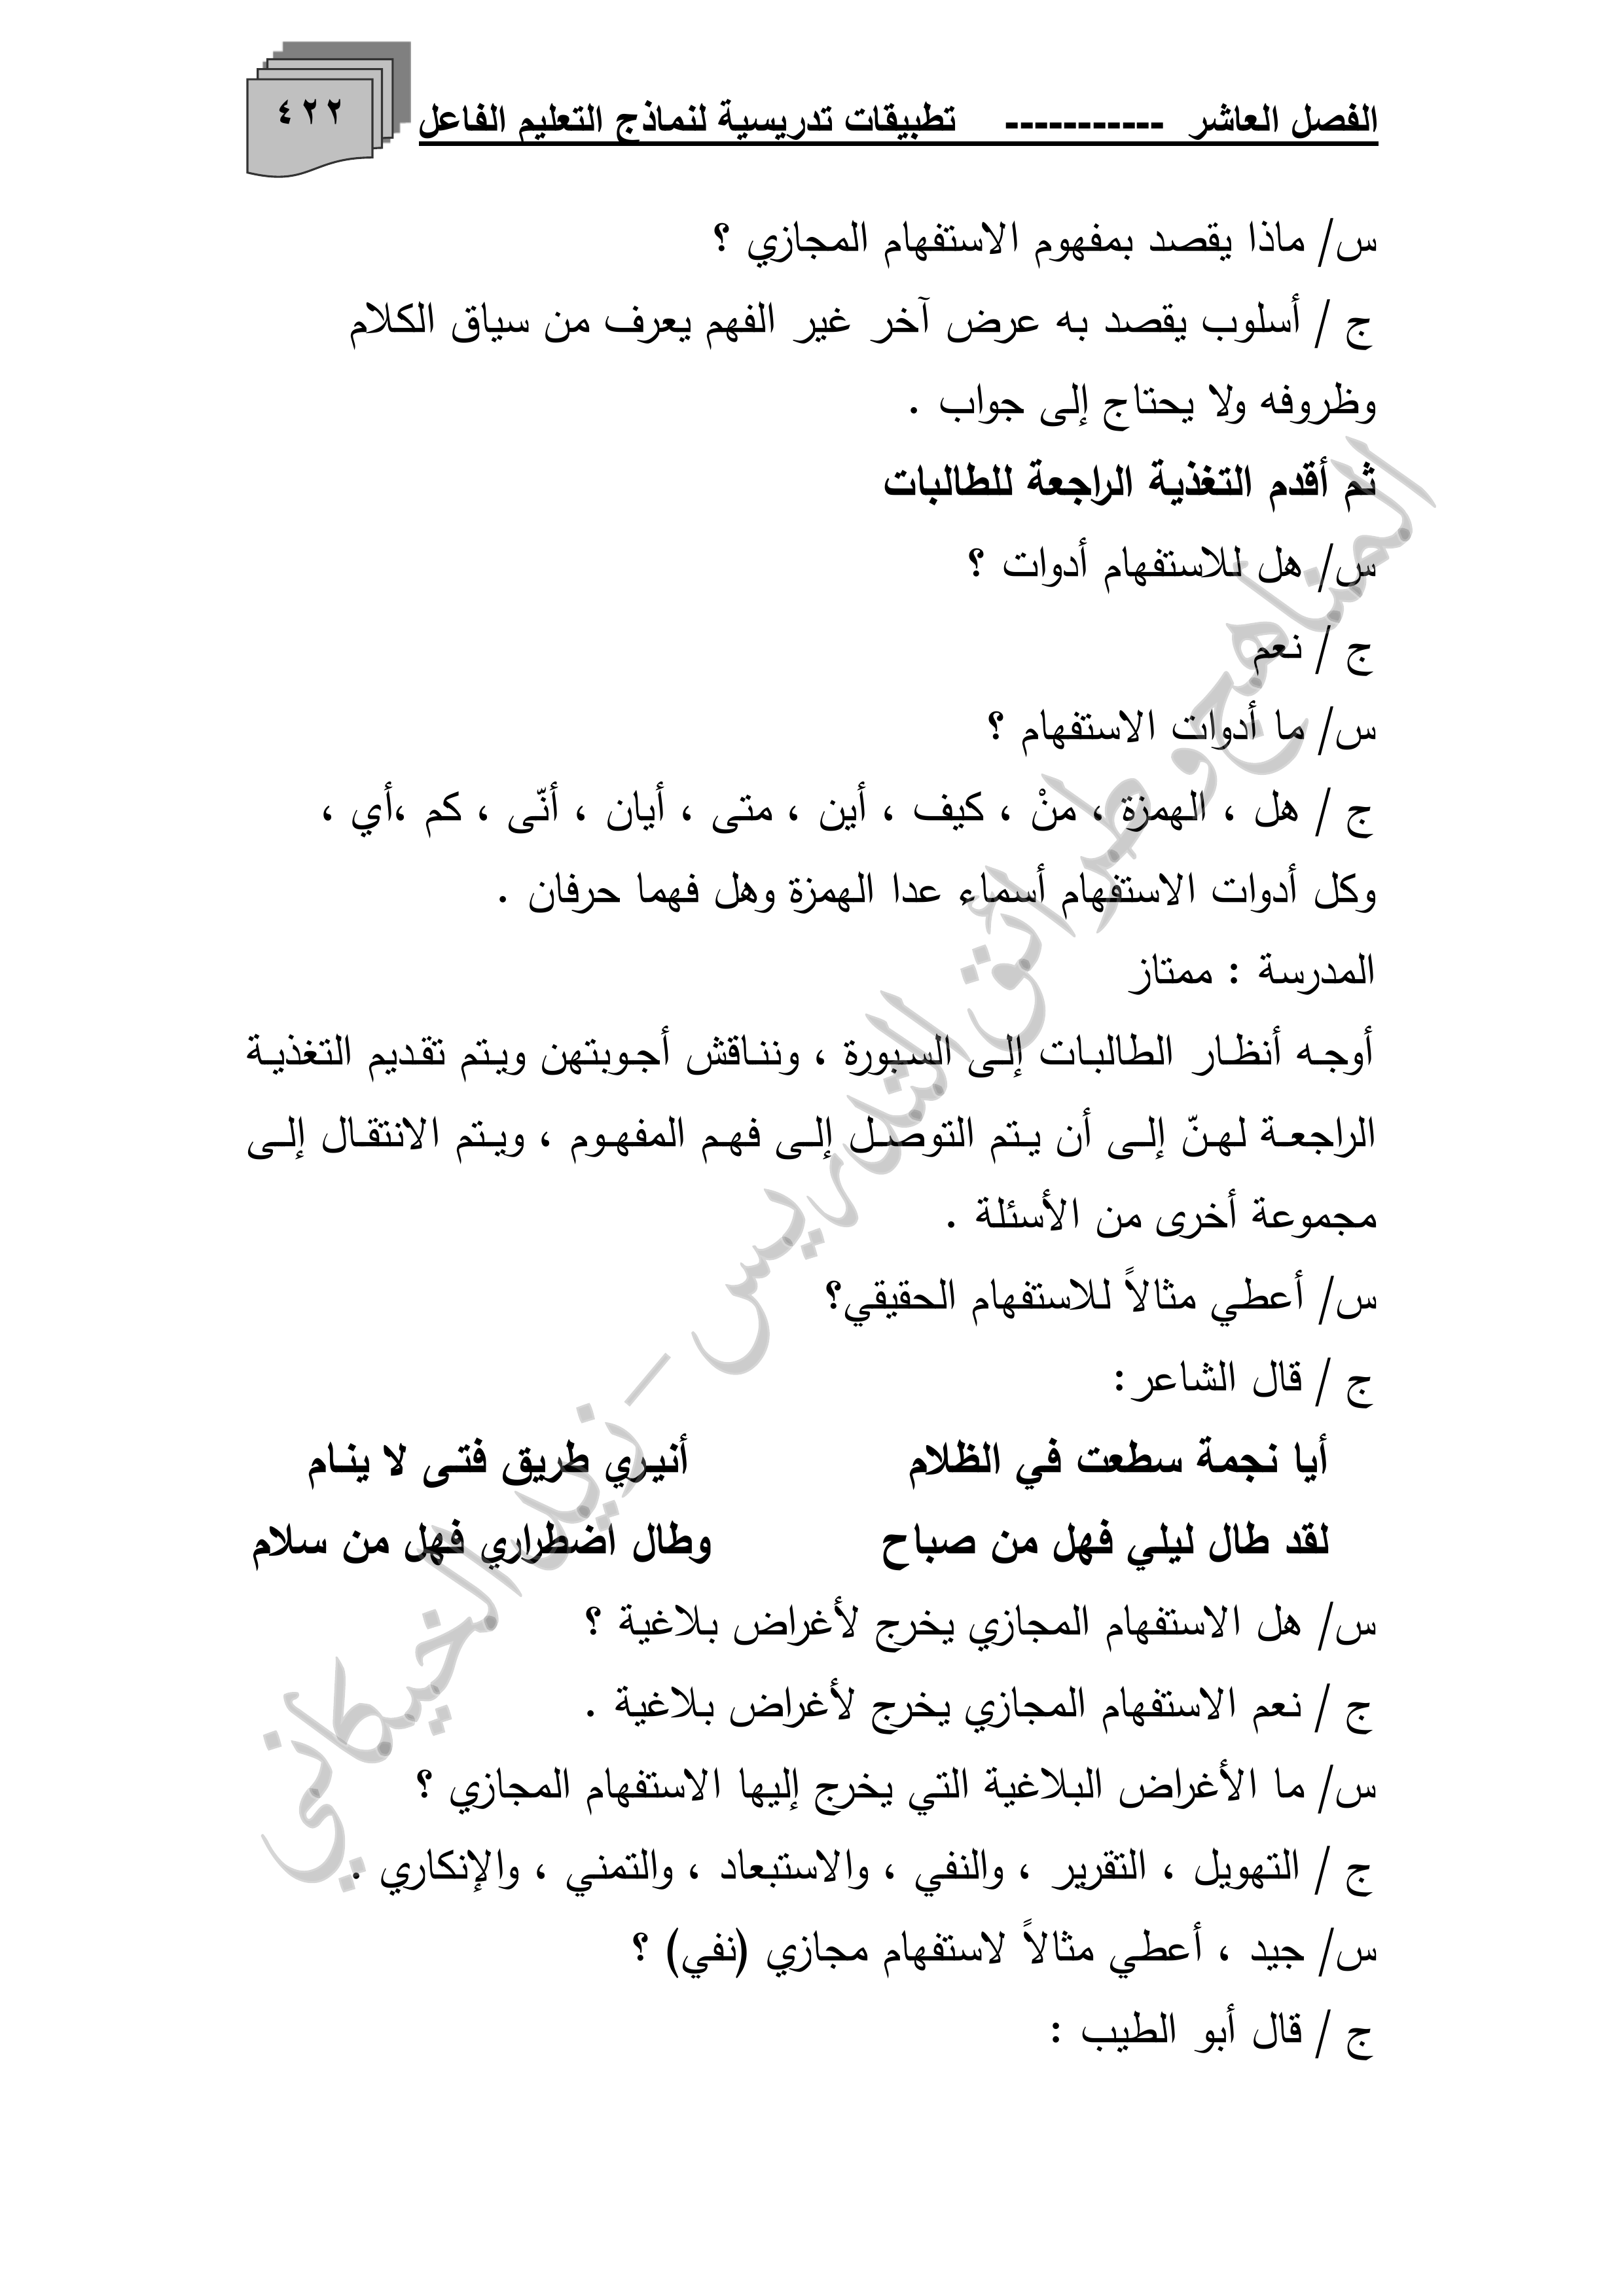 الفصل العاشر ----------- تطبيقات تدريسية لنماذج التعليم الفاعل
٤٢٢
س/ ماذا يقصد بمفهوم الاستفهام المجازي ؟
ج / أسلوب يقصد به عرض آخر غير الفهم يعرف من سياق الكلام
وظروفه ولا يحتاج إلى جواب .
ثم أقدم التغذية الراجعة للطالبات
س/ هل للاستفهام أدوات ؟
ج / نعم
س/ ما أدوات الاستفهام ؟
ج / هل ، الهمزة ، منْ ، كيف ، أين ، متى ، أيان ، أنّى ، كم ،أي ،
وكل أدوات الاستفهام أسماء عدا الهمزة وهل فهما حرفان .
المدرسة : ممتاز
أوجه أنظار الطالبات إلى السبورة ، ونناقش أجوبتهن ويتم تقديم التغذية
الراجعة لهنّ إلى أن يتم التوصل إلى فهم المفهوم ، ويتم الانتقال إلى
مجموعة أخرى من الأسئلة .
س/ أعطي مثالاً للاستفهام الحقيقي؟
ج / قال الشاعر:
أيا نجمة سطعت في الظلام أنيري طريق فتى لا ينام
لقد طال ليلي فهل من صباح وطال اضطراري فهل من سلام
س/ هل الاستفهام المجازي يخرج لأغراض بلاغية ؟
ج / نعم الاستفهام المجازي يخرج لأغراض بلاغية .
س/ ما الأغراض البلاغية التي يخرج إليها الاستفهام المجازي ؟
ج / التهويل ، التقرير ، والنفي ، والاستبعاد ، والتمني ، والإنكاري .
س/ جيد ، أعطي مثالاً لاستفهام مجازي (نفي) ؟
ج / قال أبو الطيب :
المناهج وطرائق التدريس - زيد الخيكاني